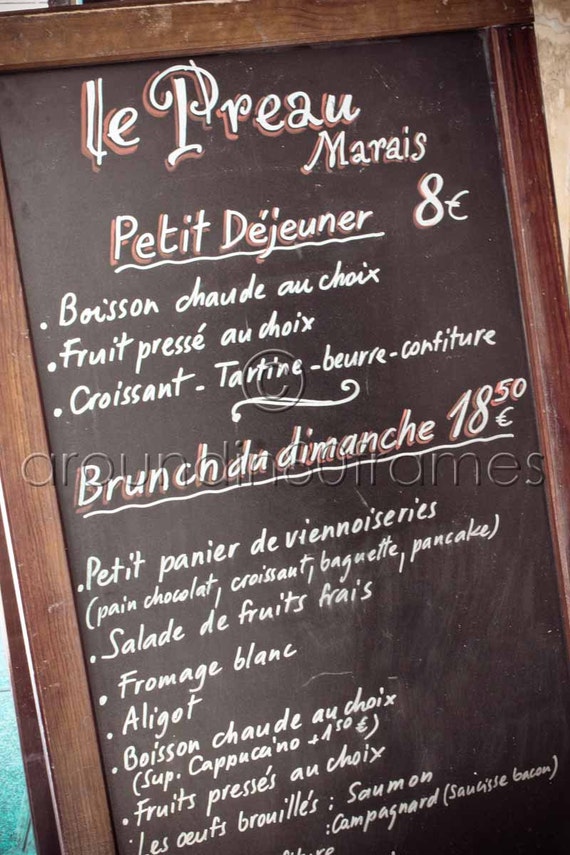 Le Preau
Marais
Petit Déjeuner 8€
• Boisson chaude au choix
• Fruit pressé au choix
• Croissant - Tartine - beurre - confiture
©
Brunch du dimanche 18⁵⁰€
aroundincutframes
• Petit panier de viennoiseries
(pain chocolat, croissant, baguette, pancake)
• Salade de fruits frais
• Fromage blanc
• Aligot
• Boisson chaude au choix
(Sup. Cappuccino + 1⁵⁰€)
• Fruits pressés au choix
• Les œufs brouillés : Saumon
: Campagnard (saucisse bacon)